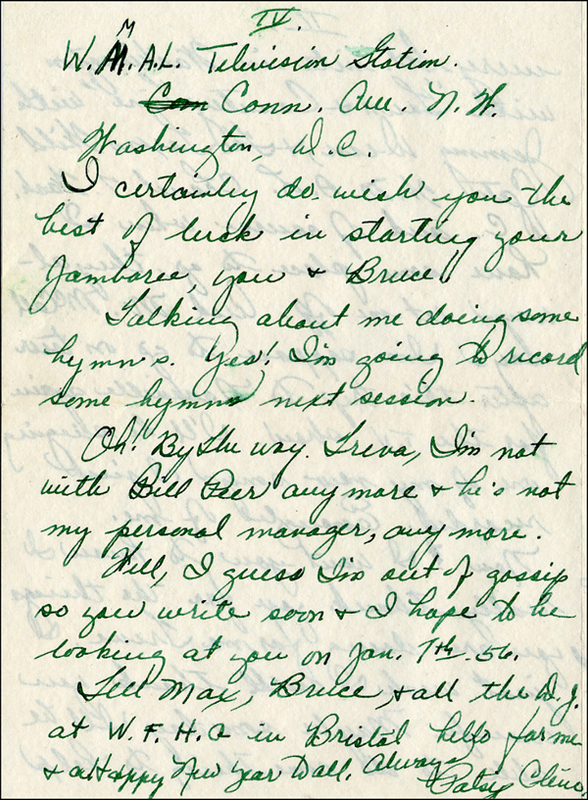 IV.
W. M. A.L. Television Station.
Conn. Ave. N. W.
Washington, D.C.
I certainley do wish you the
best of luck in starting your
Jamboree, you & Bruce.
Talking about me doing some
hymn's. Yes! I'm going to record
some hymns next session.
Oh! By the way. Treva, I'm not
with Bill Peer anymore & he's not
my personal manager, any more.
Well, I guess I'm out of gossip
so you write soon & I hope to be
looking at you on Jan. 7th. 56.
Tell Max, Bruce, & all the D.J.
at W. F. H. G in Bristol hello for me
& a Happy New Year to all. Always
Patsy Cline,